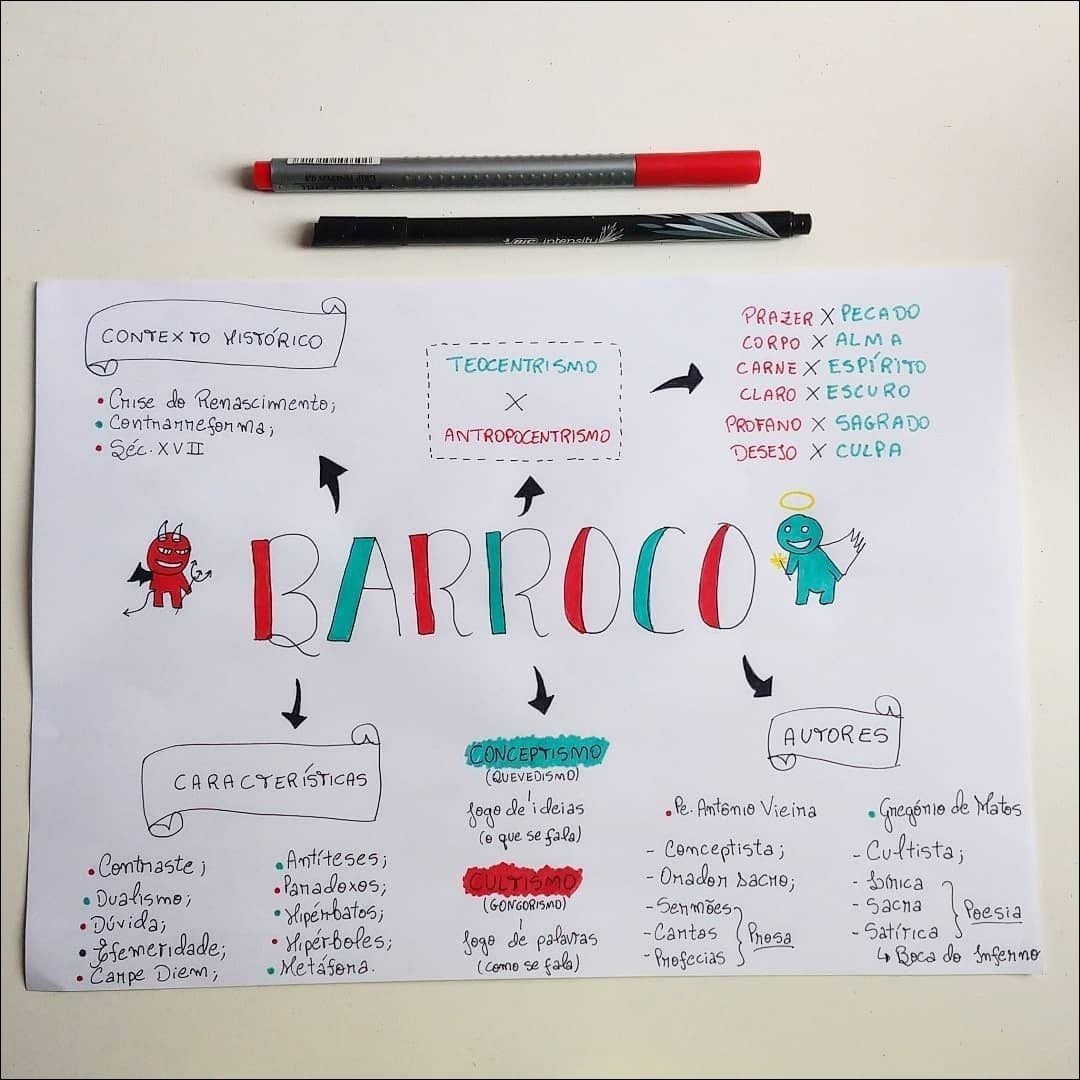 BIC intensity
CONTEXTO HISTÓRICO
• Crise do Renascimento;
• Contrarreforma;
• Séc. XVII
TEOCENTRISMO
X
ANTROPOCENTRISMO
PRAZER X PECADO
CORPO X ALMA
CARNE X ESPÍRITO
CLARO X ESCURO
PROFANO X SAGRADO
DESEJO X CULPA
BARROCO
CARACTERÍSTICAS
• Contraste;
• Dualismo;
• Dúvida;
• Efemeridade;
• Carpe Diem;
• Antíteses;
• Paradoxos;
• Hipérbatos;
• Hipérboles;
• Metáfora.
CONCEPTISMO
(QUEVEDISMO)
Jogo de ideias
(o que se fala)
CULTISMO
(GONGORISMO)
Jogo de palavras
(como se fala)
AUTORES
• Pe. Antônio Vieira
- Conceptista;
- Orador sacro;
- Sermões
- Cartas
- Profecias
Prosa
• Gregório de Matos
- Cultista;
- Lírica
- Sacra
- Satírica
Poesia
↳ Boca do Inferno